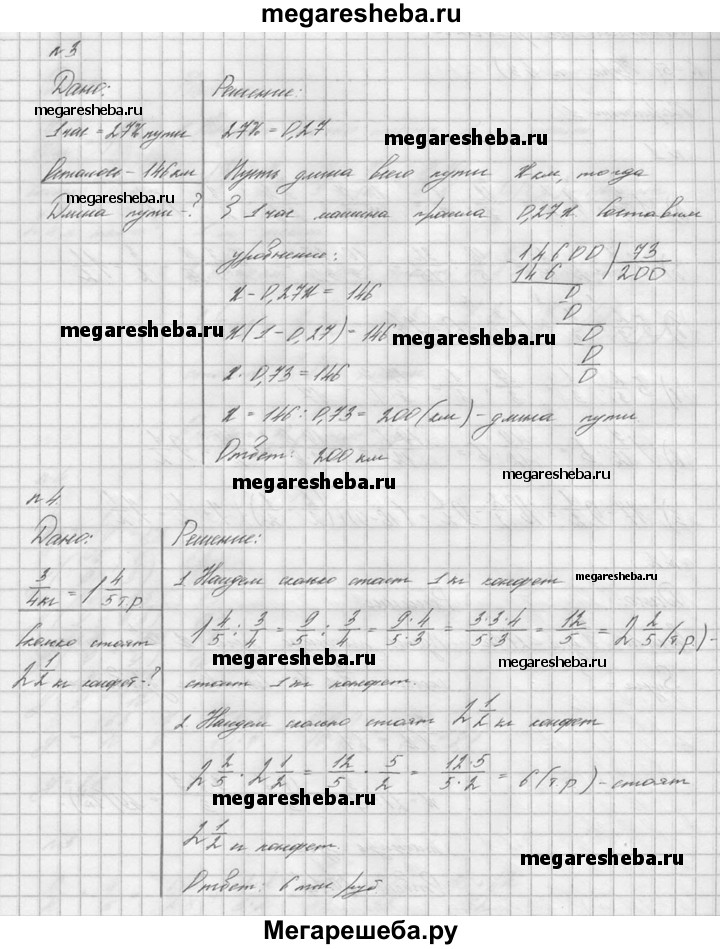 megaresheba.ru
n 3
Дано:
megaresheba.ru
1 час = 27% пути
Осталось - 146 км
megaresheba.ru
Длина пути - ?
Решение:
27% = 0,27
megaresheba.ru
Пусть длина всего пути x км, тогда
З 1 час машина прошла 0,27x Составим
уравнение:
14600 | 73
146 200
0
0
0
0
0
x - 0,27x = 146
megaresheba.ru
x(1 - 0,27) = 146
megaresheba.ru
x · 0,73 = 146
x = 146 : 0,73 = 200 (км) - длина пути
Ответ: 200 км
megaresheba.ru
megaresheba.ru
n 4
Дано:
3/4 кг = 1 4/5 т.р
Сколько стоят
2 1/2 кг конфет - ?
Решение:
1. Найдем сколько стоит 1 кг конфет
megaresheba.ru
1 4/5 : 3/4 = 9/5 : 3/4 = 9·4/5·3 = 3·3·4/5·3 = 12/5 = 2 2/5 (т.р) -
megaresheba.ru
megaresheba.ru
стоит 1 кг конфет.
2 Найдем сколько стоят 2 1/2 кг конфет
2 2/5 · 2 1/2 = 12/5 · 5/2 = 12·5/5·2 = 6 (т.р) - стоят
megaresheba.ru
2 1/2 кг конфет.
megaresheba.ru
Ответ: 6 тыс руб
Мегарешеба.ру